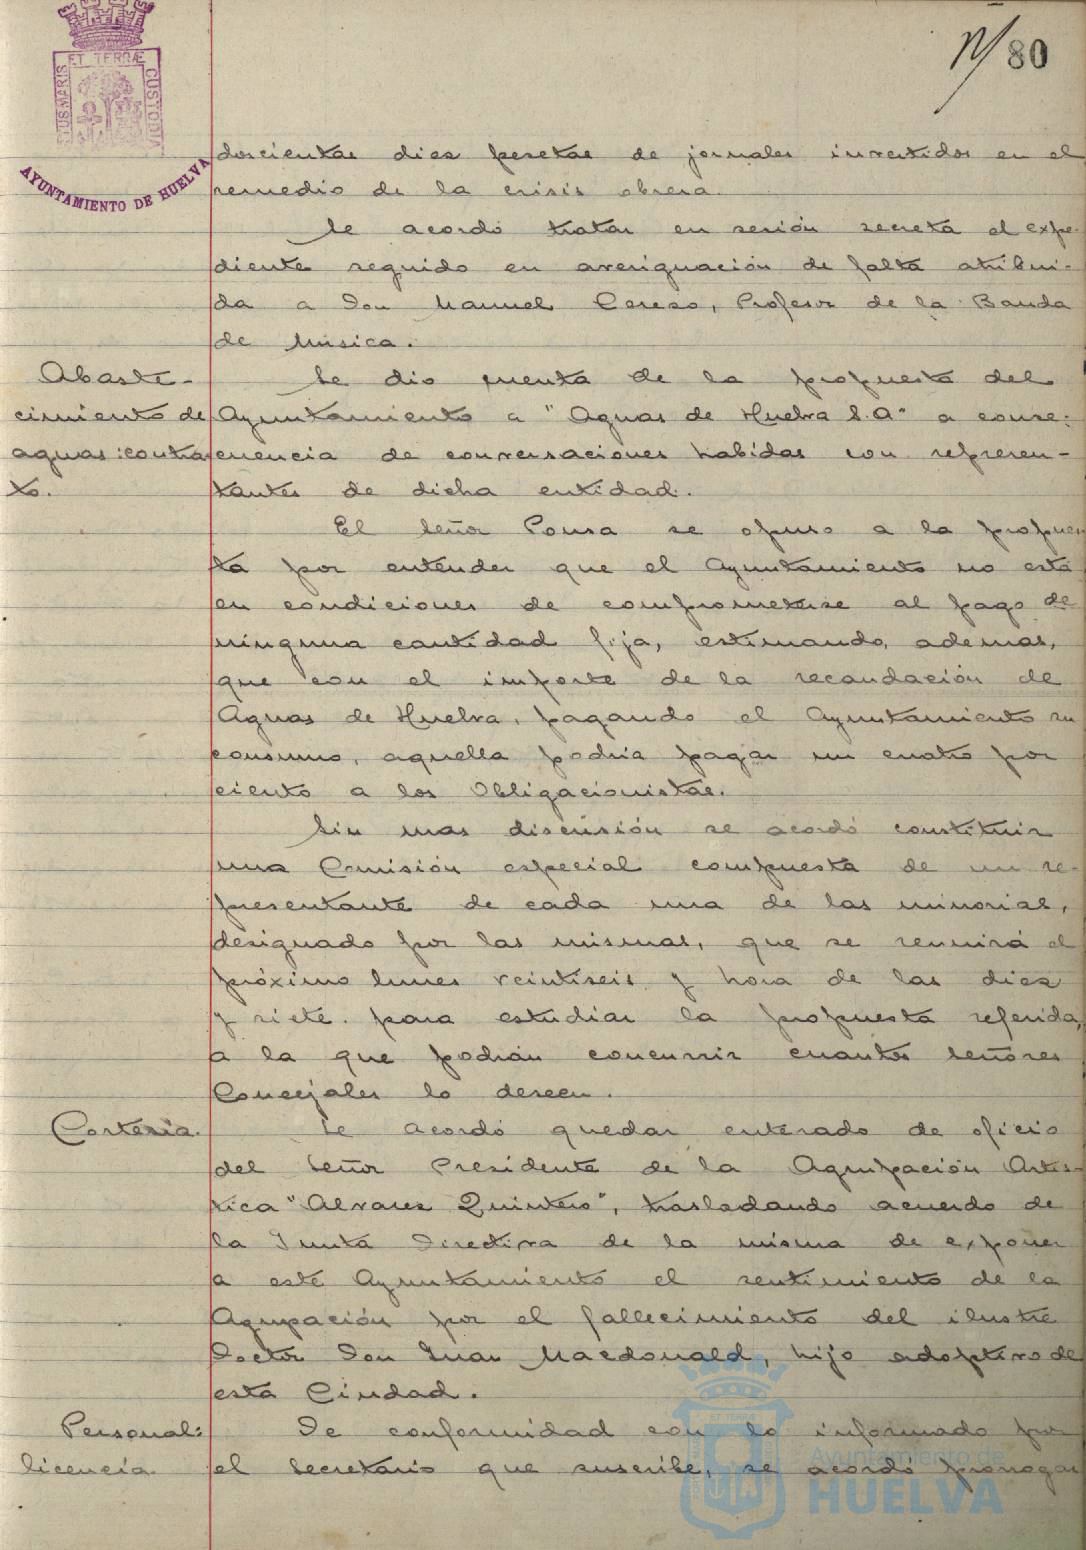 80
ET TERRÆ
CUSTODIA
AYUNTAMIENTO DE HUELVA
doscientas diez pesetas de jornales invertidos en el
remedio de la crisis obrera.
Se acordó tratar en sesión secreta el expe-
diente seguido en averiguación de falta atribui-
da a Don Manuel Cerezo, Profesor de la Banda
de Música.
Abaste-
cimiento de
aguas: contra
to.
Se dio cuenta de la propuesta del
Ayuntamiento a "Aguas de Huelva S.A" a conse-
cuencia de conversaciones habidas con represen-
tantes de dicha entidad.
El Señor Ponsa se opuso a la propues
ta por entender que el Ayuntamiento no está
en condiciones de comprometerse al pago de
ninguna cantidad fija, estimando, ademas,
que con el importe de la recaudación de
Aguas de Huelva, pagando el Ayuntamiento su
consumo, aquella podria pagar un cuatro por
ciento a los Obligacionistas.
Sin mas discusión se acordó constituir
una Comisión especial compuesta de un re-
presentante de cada una de las minorias,
designado por las mismas, que se reunirá el
próximo lunes veintiseis y hora de las diez
y siete para estudiar la propuesta referida,
a la que podrán concurrir cuantos señores
Concejales lo deseen.
Cortesia.
Se acordó quedar enterado de oficio
del Señor Presidente de la Agrupación Artis-
tica "Alvarez Quintero", trasladando acuerdo de
la Junta Directiva de la misma de exponer
a este Ayuntamiento el sentimiento de la
Agrupación por el fallecimiento del ilustre
Doctor Don Juan Macdonald, hijo adoptivo de
esta Ciudad.
Personal:
licencia.
De conformidad con lo informado por
el Secretario que suscribe, se acordó prorrogar
Ayuntamiento de
HUELVA